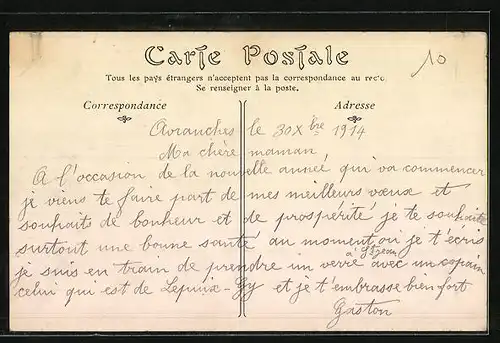 Carte Postale
10
Tous les pays étrangers n'acceptent pas la correspondance au recto
Se renseigner à la poste.
Correspondance
Adresse
Avranches le 30 Xbre 1914
Ma chère maman
A l'occasion de la nouvelle anneé qui va commencer
je viens te faire part de mes meilleurs vœux et
souhaits de bonheur et de prospérité je te souhaite
surtout une bonne santé au moment ou je t'écris
à St Jean
je suis en train de prendre un verre avec un copain
celui qui est de Lepuix-Gy et je t'embrasse bien fort
Gaston